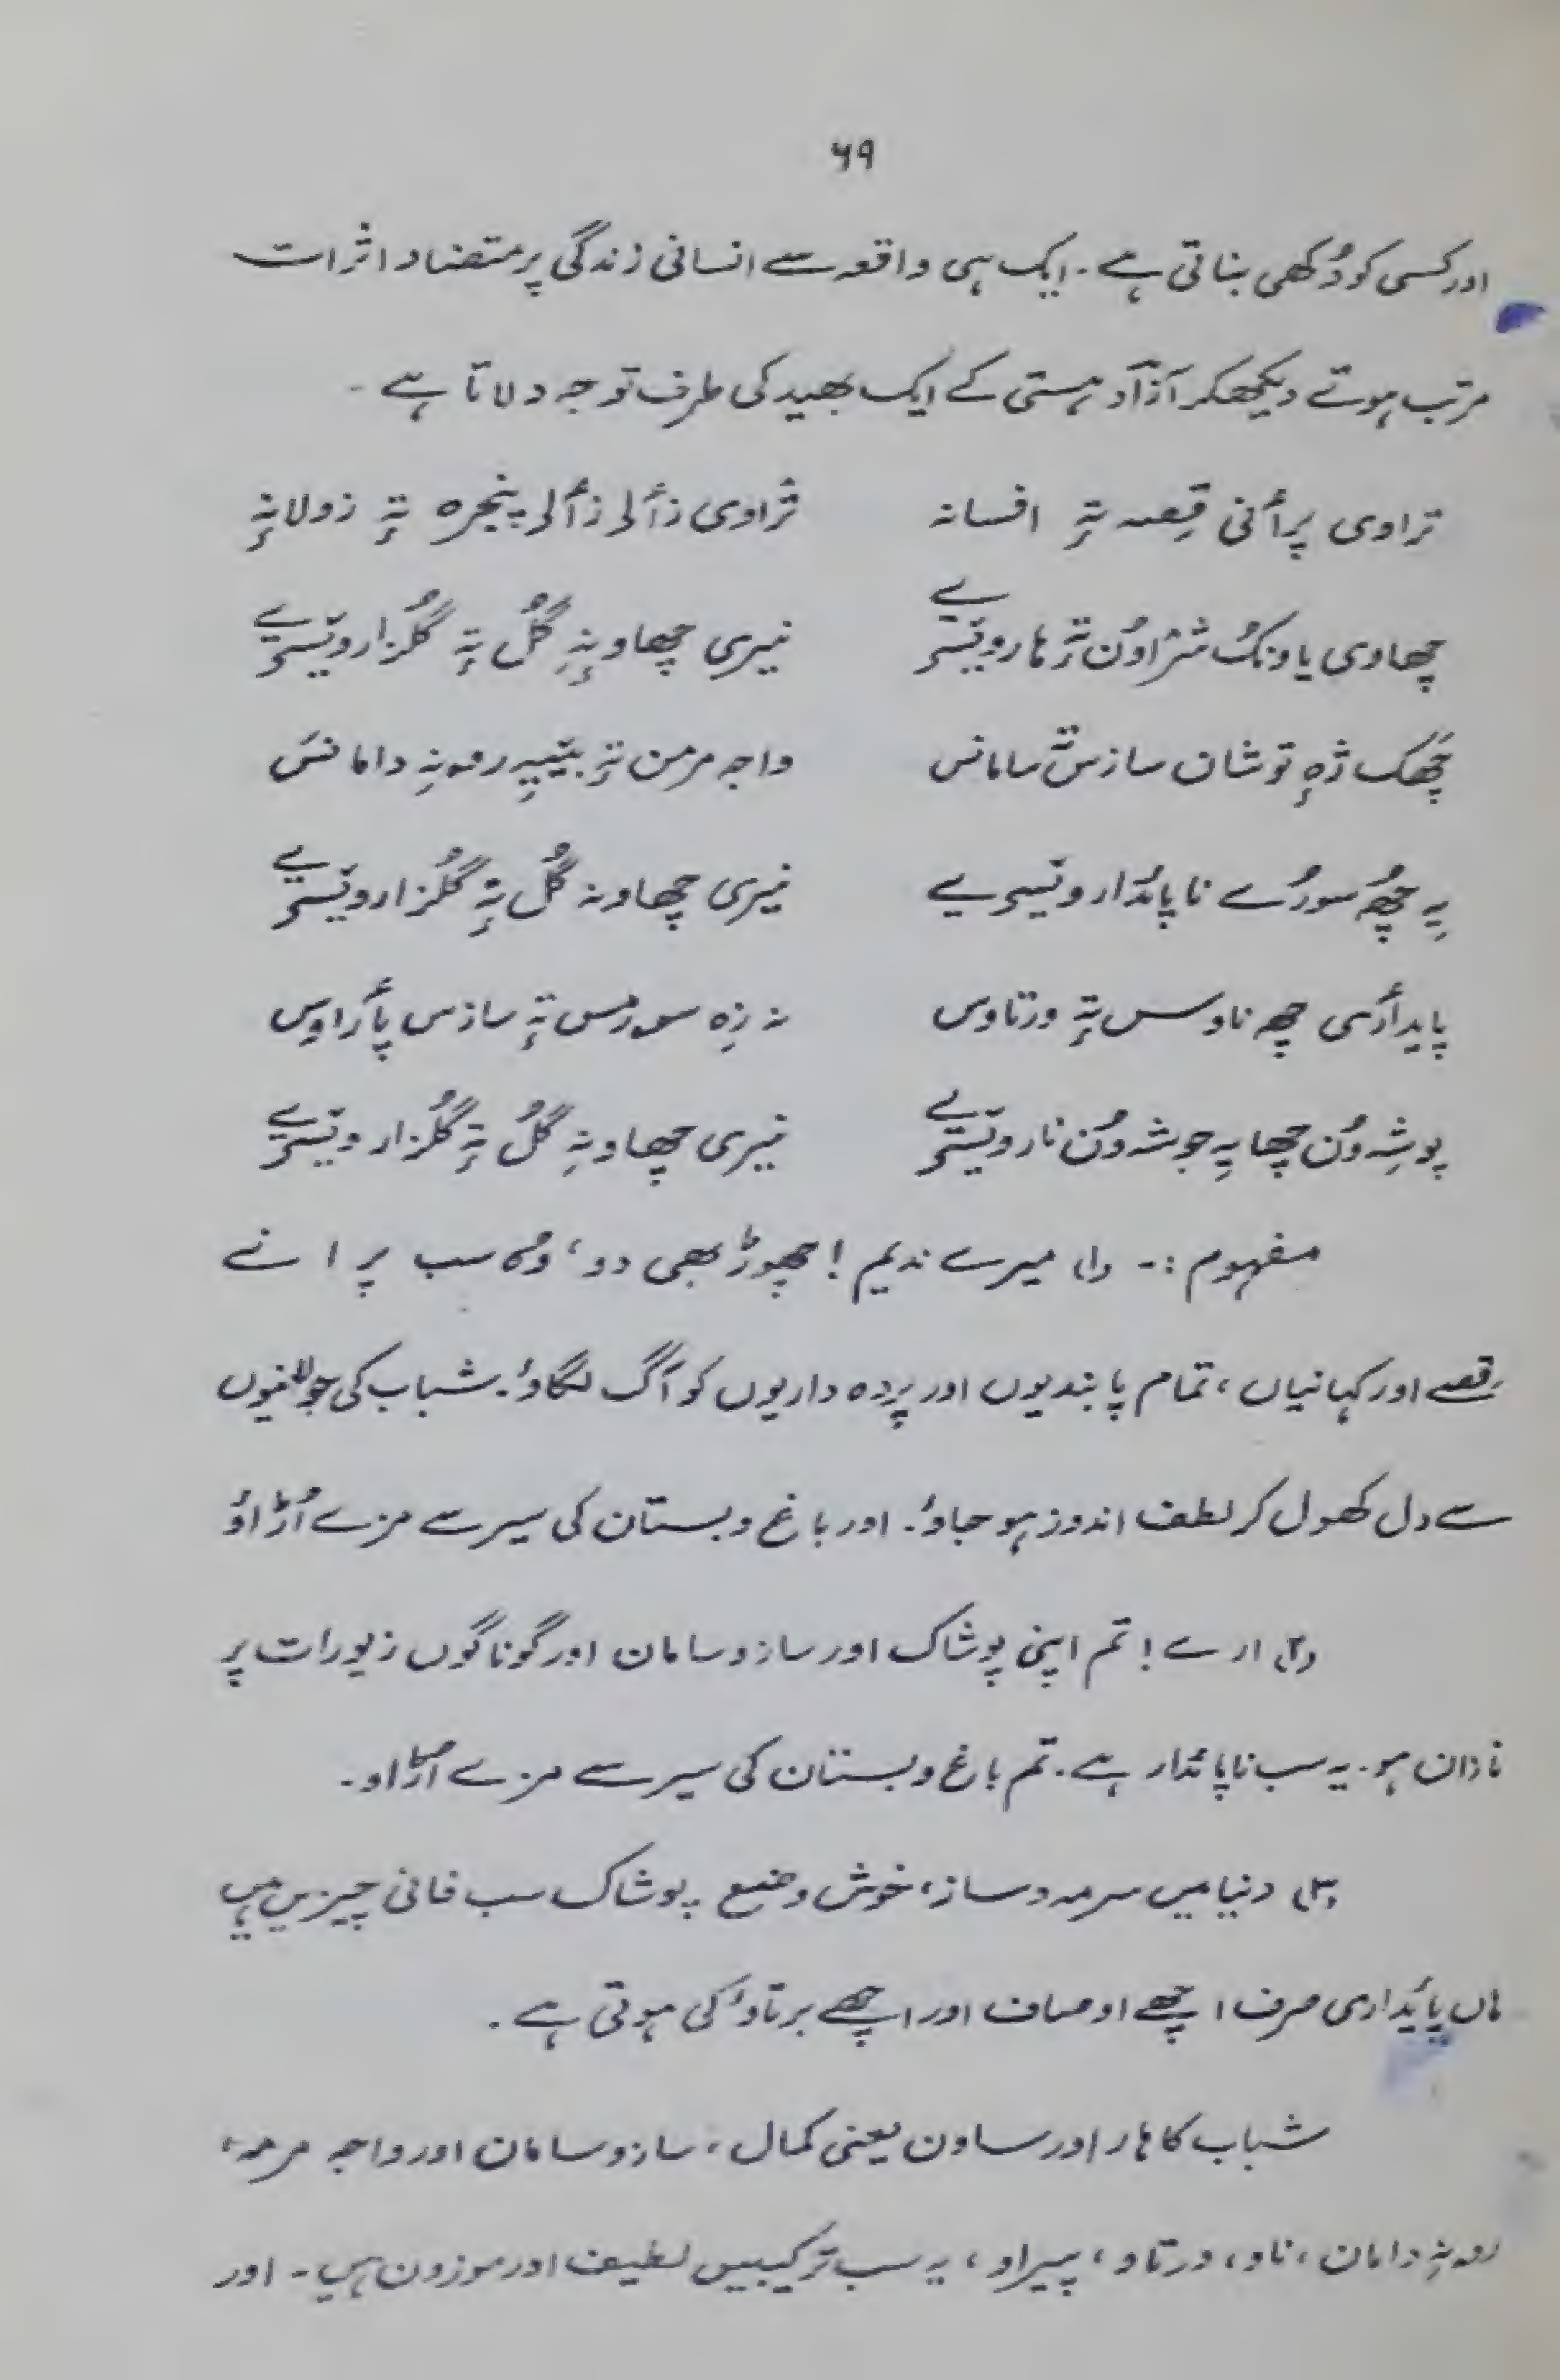 ۶۹
اور کسی کو دُکھی بناتی ہے۔ ایک ہی واقعہ سے انسانی زندگی پر متضاد اثرات
مرتب ہوتے دیکھکر آزآد ہستی کے ایک بھید کی طرف توجہ دلاتا ہے۔
تراوی پرأنی قِصہ تہٕ افسانہ ترٛاوی زألی زألی پنجرہ تہٕ زولانہٕ
چھاوی یاونکُ شرٛاوُن تہٕ ہار ویسی یے نیری چھاونہِ گُل تہٕ گلزار ویسی یے
چھکُ ژہٕ توشان سازس تہٕ سامانس واجہ مرمن تہٕ بییہِ رمہ نہِ دامانس
یہِ چھُ سورُے ناپائدار ویسی یے نیری چھاونہ گُل تہٕ گُلزار ویسی یے
پایدأری چھ ناوس تہٕ ورتاوس نہ زہِ سورمس تہٕ سازس پأراوِس
پوشہِ وُن چھا یہِ جوشہ وُن نار ویسی یے نیری چھاونہِ گُل تہٕ گُلزار ویسی یے
مفہوم :۔ (۱) میرے ندیم! چھوڑ بھی دو، وہ سب پرانے
قصے اور کہانیاں، تمام پابندیوں اور پردہ داریوں کو آگ لگاؤ۔ شباب کی جولانیوں
سے دل کھول کر لطف اندوز ہو جاؤ۔ اور باغ و بستان کی سیر سے مزے اُڑاؤ
(۲) ارے! تم اپنی پوشاک اور ساز و سامان اور گوناگوں زیورات پر
نازان ہو۔ یہ سب ناپائدار ہے۔ تم باغ و بستان کی سیر سے مزے اُڑاو۔
(۳) دنیا میں سرمہ و ساز، خوش وضع پوشاک سب فانی چیزیں ہیں
ہاں پائیداری صرف اچھے اوصاف اور اچھے برتاؤ کی ہوتی ہے۔
شباب کا ہار اور ساون یعنی کمال، ساز و سامان اور واجہ مرمہ،
رمہ نہِ دامان، ناو، ورتاو، پیراو، یہ سب ترکیبیں لطیف اور موزون ہیں۔ اور